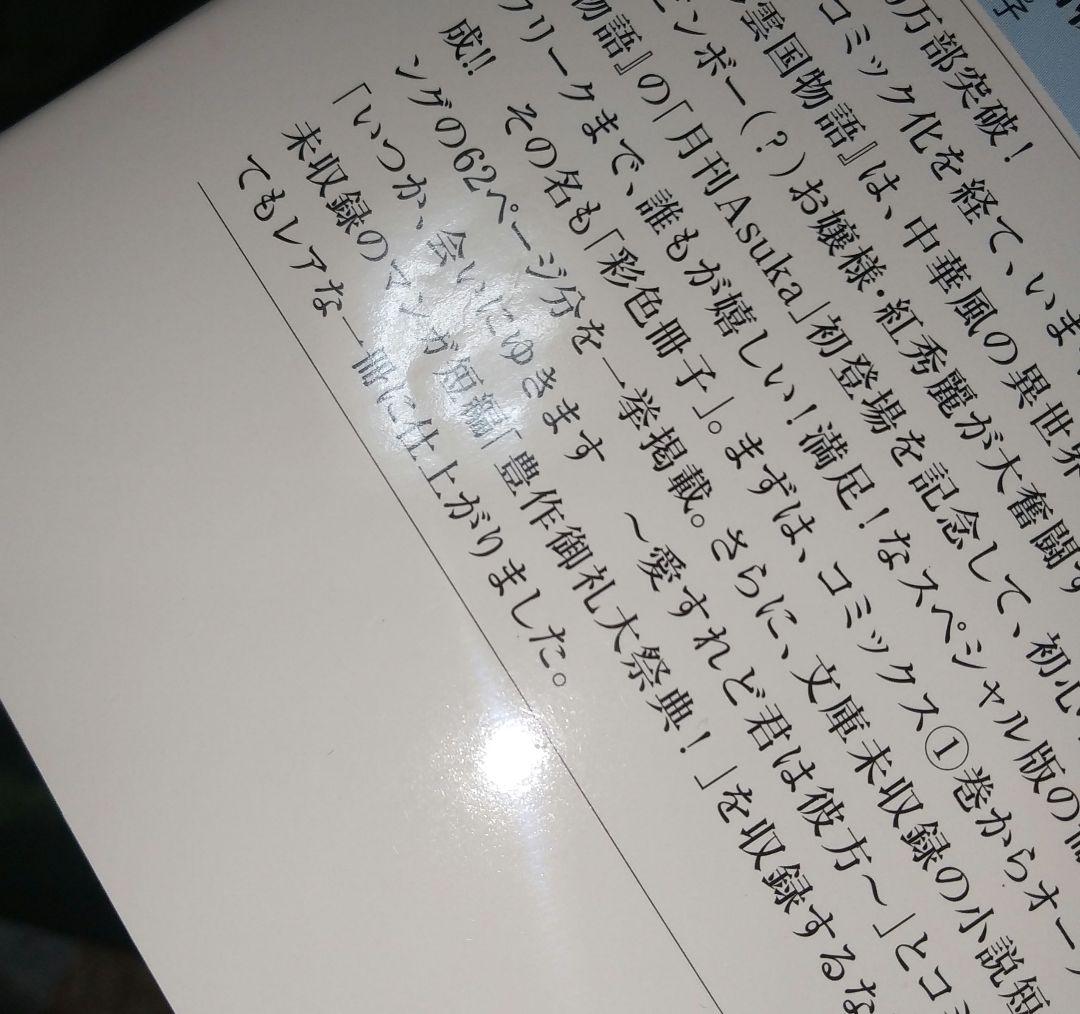 子
万部突破！
コミック化を経て、いま
雲国物語』は、中華風の異世界
ンボー(？)お嬢様・紅秀麗が大奮闘す
物語』の「月刊Asuka」初登場を記念して、初心
フリークまで、誰もが嬉しい！満足！なスペシャル版の
成!!　その名も「彩色冊子」。まずは、コミックス①巻からオー
ングの62ページ分を一挙掲載。さらに、文庫未収録の小説短
「いつか、会いにゆきます　～愛すれど君は彼方～」とコミ
未収録のマンガ短編「豊作御礼大祭典！」を収録するな
てもレアな一冊に仕上がりました。